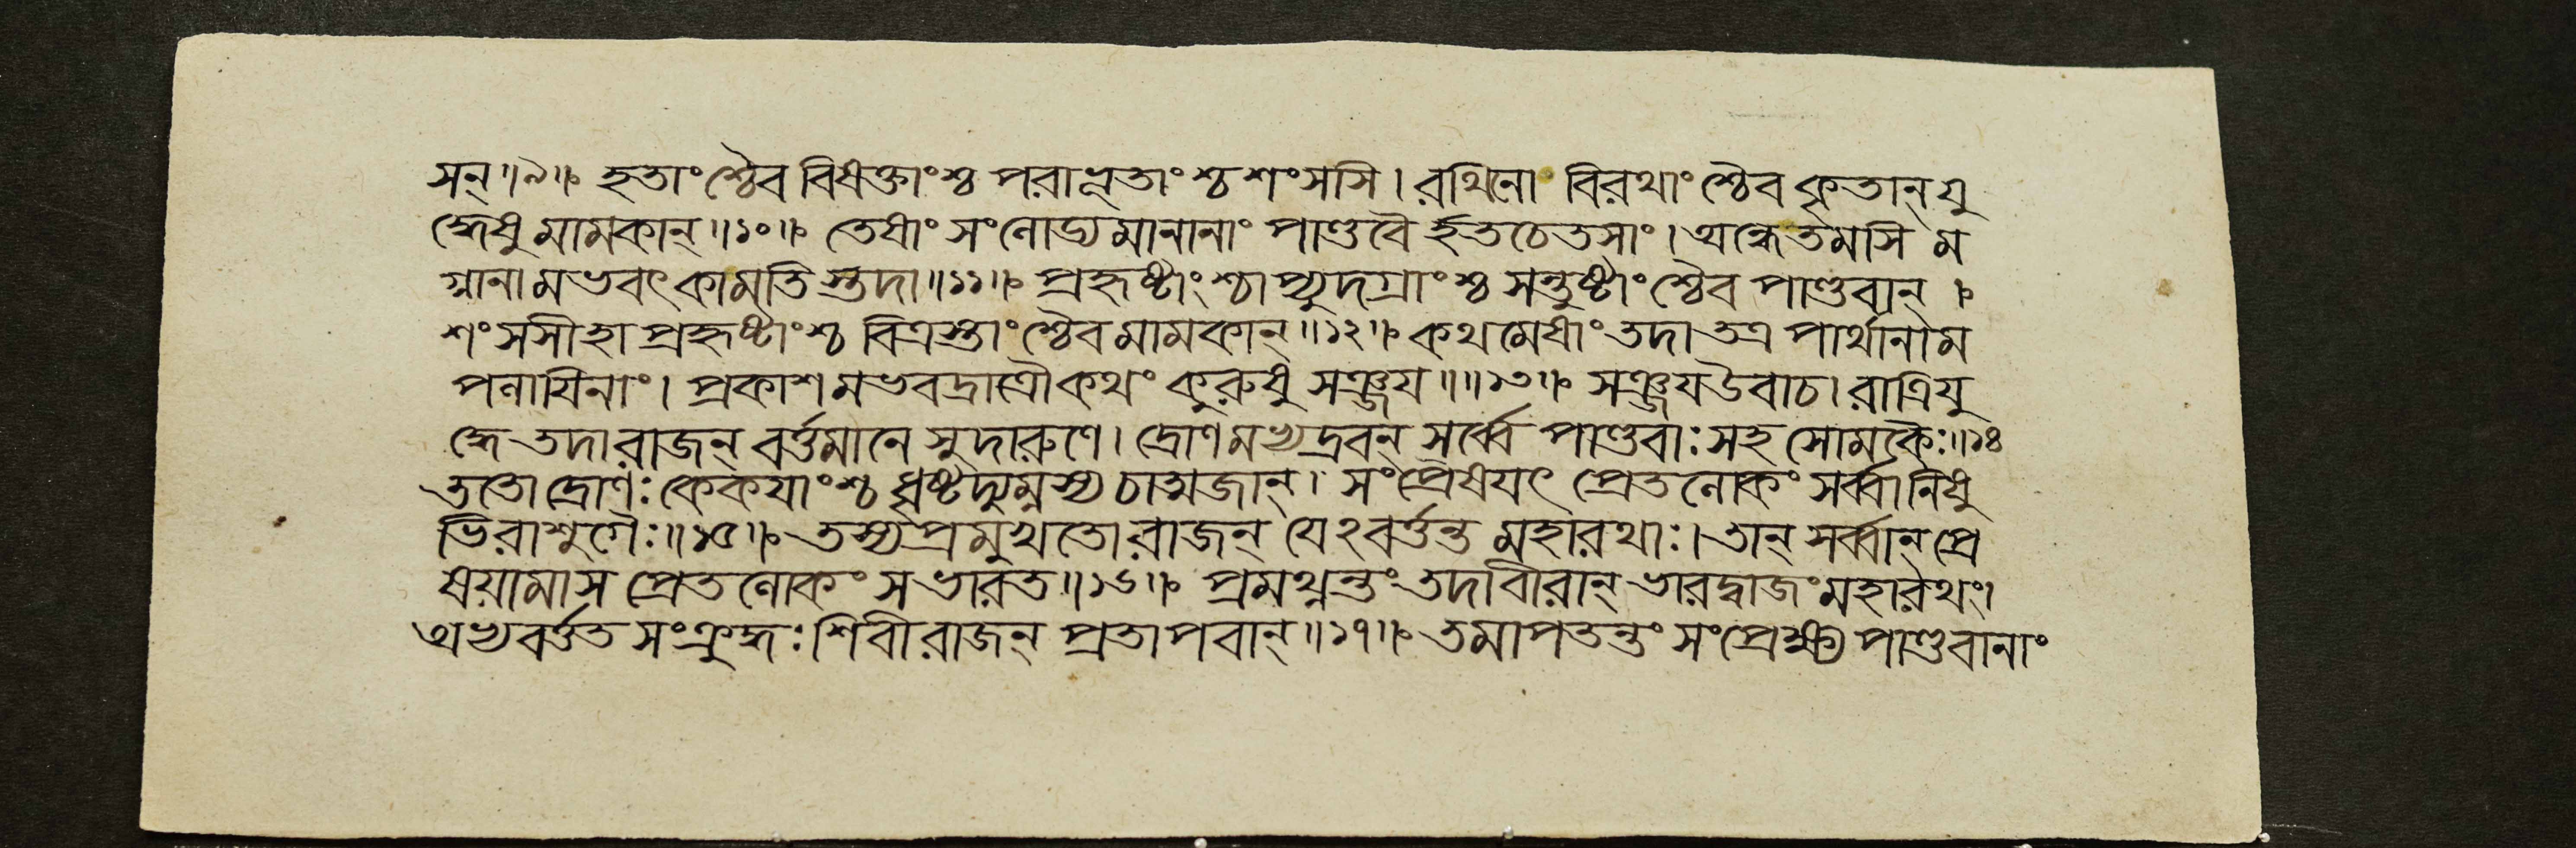 সন্॥৯॥ হতাংশ্চৈব বিষক্তাংশ্চ পরাভূতাংশ্চ শংসসি। রথিনো বিরথাংশ্চৈব কৃতান্ যু
দ্ধেষু মামকান্॥১০॥ তেষাং সংলোড্যমানানাং পাণ্ডবৈর্হতচেতসাং। অন্ধে তমসি ম
গ্নানামভবৎ কা মতিস্তদা॥১১॥ প্রহৃষ্টাংশ্চাপ্যুদগ্রাংশ্চ সন্তুষ্টাংশ্চৈব পাণ্ডবান্।
শংসসীহাপ্রহৃষ্টাংশ্চ বিত্রস্তাংশ্চৈব মামকান্॥১২॥ কথমেষাং তদা তত্র পার্থানাম
পলাযিনাং। প্রকাশমভবদ্রাত্রৌ কথং কুরুষু সঞ্জয॥॥১৩॥ সঞ্জয উবাচ। রাত্রিযু
দ্ধে তদা রাজন্ বর্ত্তমানে সুদারুণে। দ্রোণমভ্যদ্রবন্ সর্ব্বে পাণ্ডবাঃ সহ সোমকৈঃ॥১৪
ততো দ্রোণঃ কেকযাংশ্চ ধৃষ্টদ্যুম্নস্য চাত্মজান্। সংপ্রৈষযৎ প্রেতলোকং সর্ব্বানিষু
ভিরাশুগৈঃ॥১৫॥ তস্য প্রমুখতো রাজন্ যেঽবর্ত্তন্ত মহারথাঃ। তান্ সর্ব্বান্ প্রে
ষয়ামাস প্রেতলোকং স ভারত॥১৬॥ প্রমথ্নন্তং তদা বীরান্ ভারদ্বাজং মহারথং।
অভ্যবর্ত্তত সংক্রুদ্ধঃ শিবী রাজন্ প্রতাপবান্॥১৭॥ তমাপতন্তং সংপ্রেক্ষ্য পাণ্ডবানাং